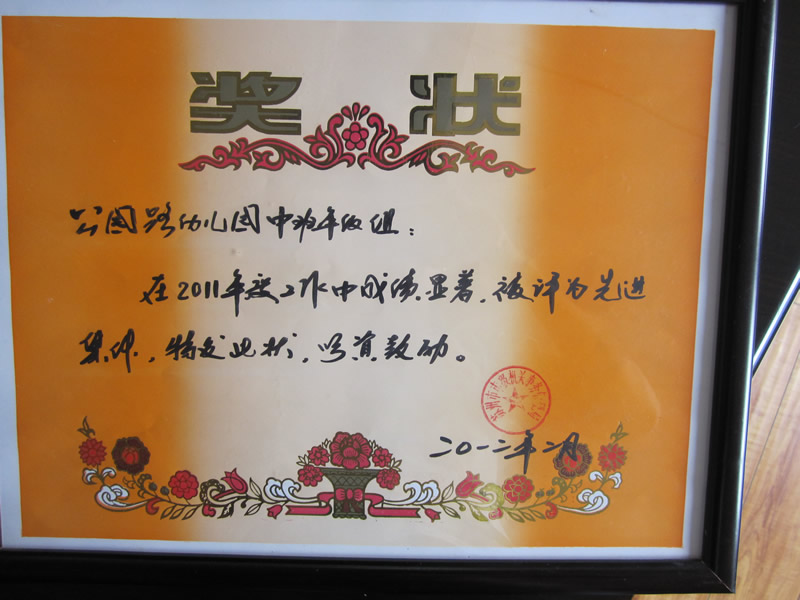 奖状
公园路幼儿园中班年级组：
在2011年度工作中成绩显著，被评为先进
集体，特发此状，以资鼓励。
二〇一二年二月